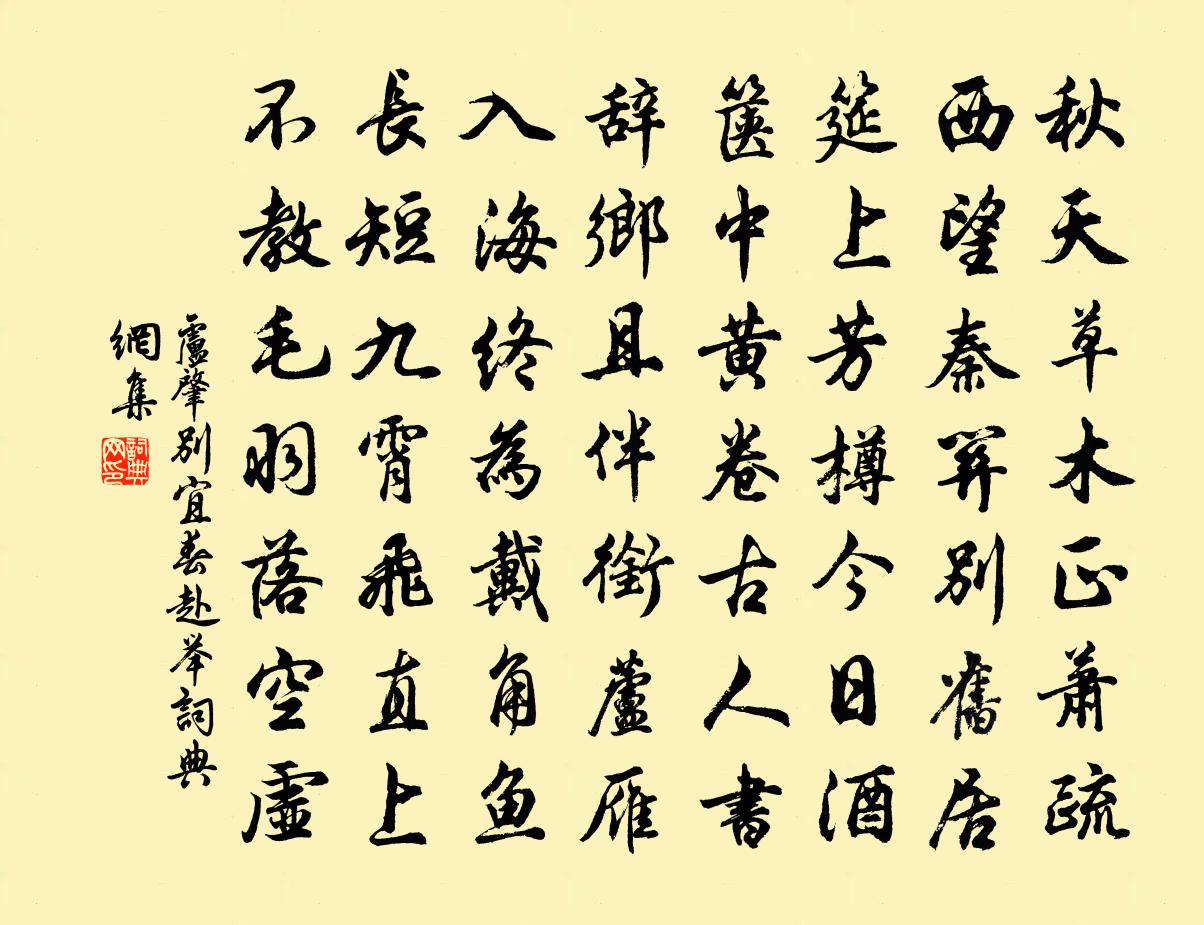 秋天草木正蕭疏
西望秦關別舊居
筵上芳樽今日酒
篋中黃卷古人書
辭鄉且伴銜蘆雁
入海終為戴角魚
長短九霄飛直上
不教毛羽落空虛
盧肇別宜春赴举詞典
網集
詞典
网印